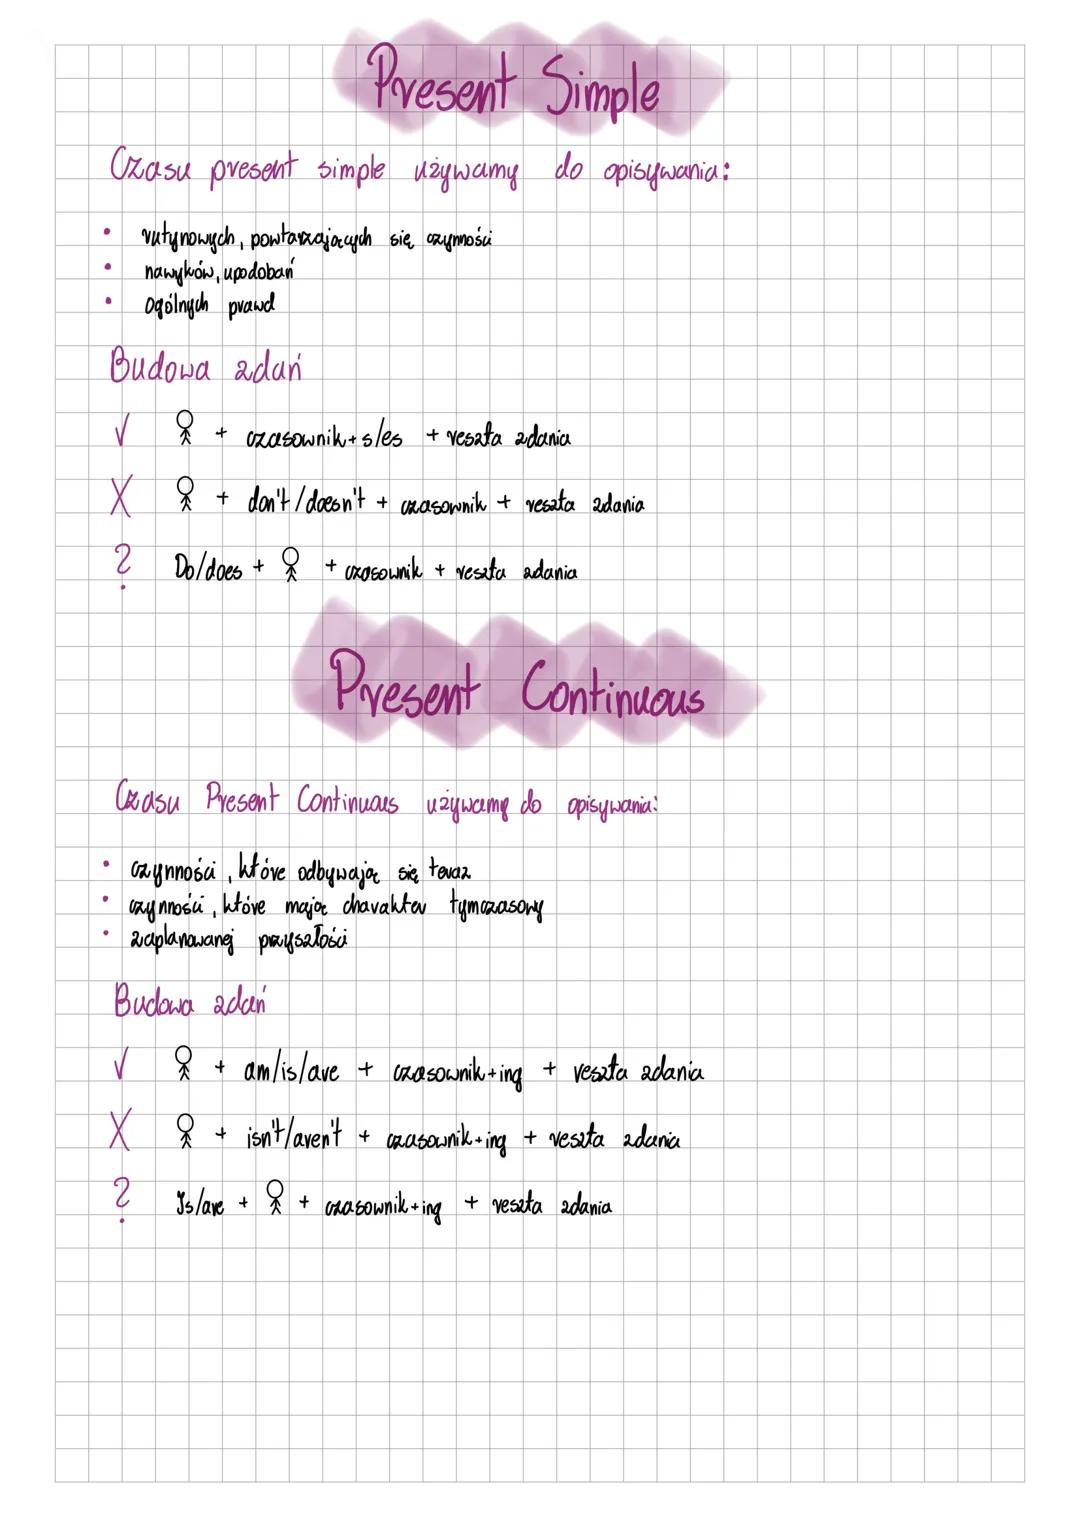 Present Simple
Czasu present simple używamy do opisywania:
• rutynowych, powtarzających się czynności
• nawyków, upodobań
• ogólnych prawd
Budowa zdań
✓ + czasownik+s/es + reszta zdania
X + don't/doesn't + czasownik + reszta zdania
? Do/does + + czasownik + reszta zdania
Present Continuous
Czasu Present Continuous używamy do opisywania:
• czynności, które odbywają się teraz
• czynności, które mają charakter tymczasowy
• zaplanowanej przyszłości
Budowa zdań
✓ + am/is/are + czasownik+ing + reszta zdania
X + isn't/aren't + czasownik+ing + reszta zdania
? Is/are + + czasownik+ing + reszta zdania